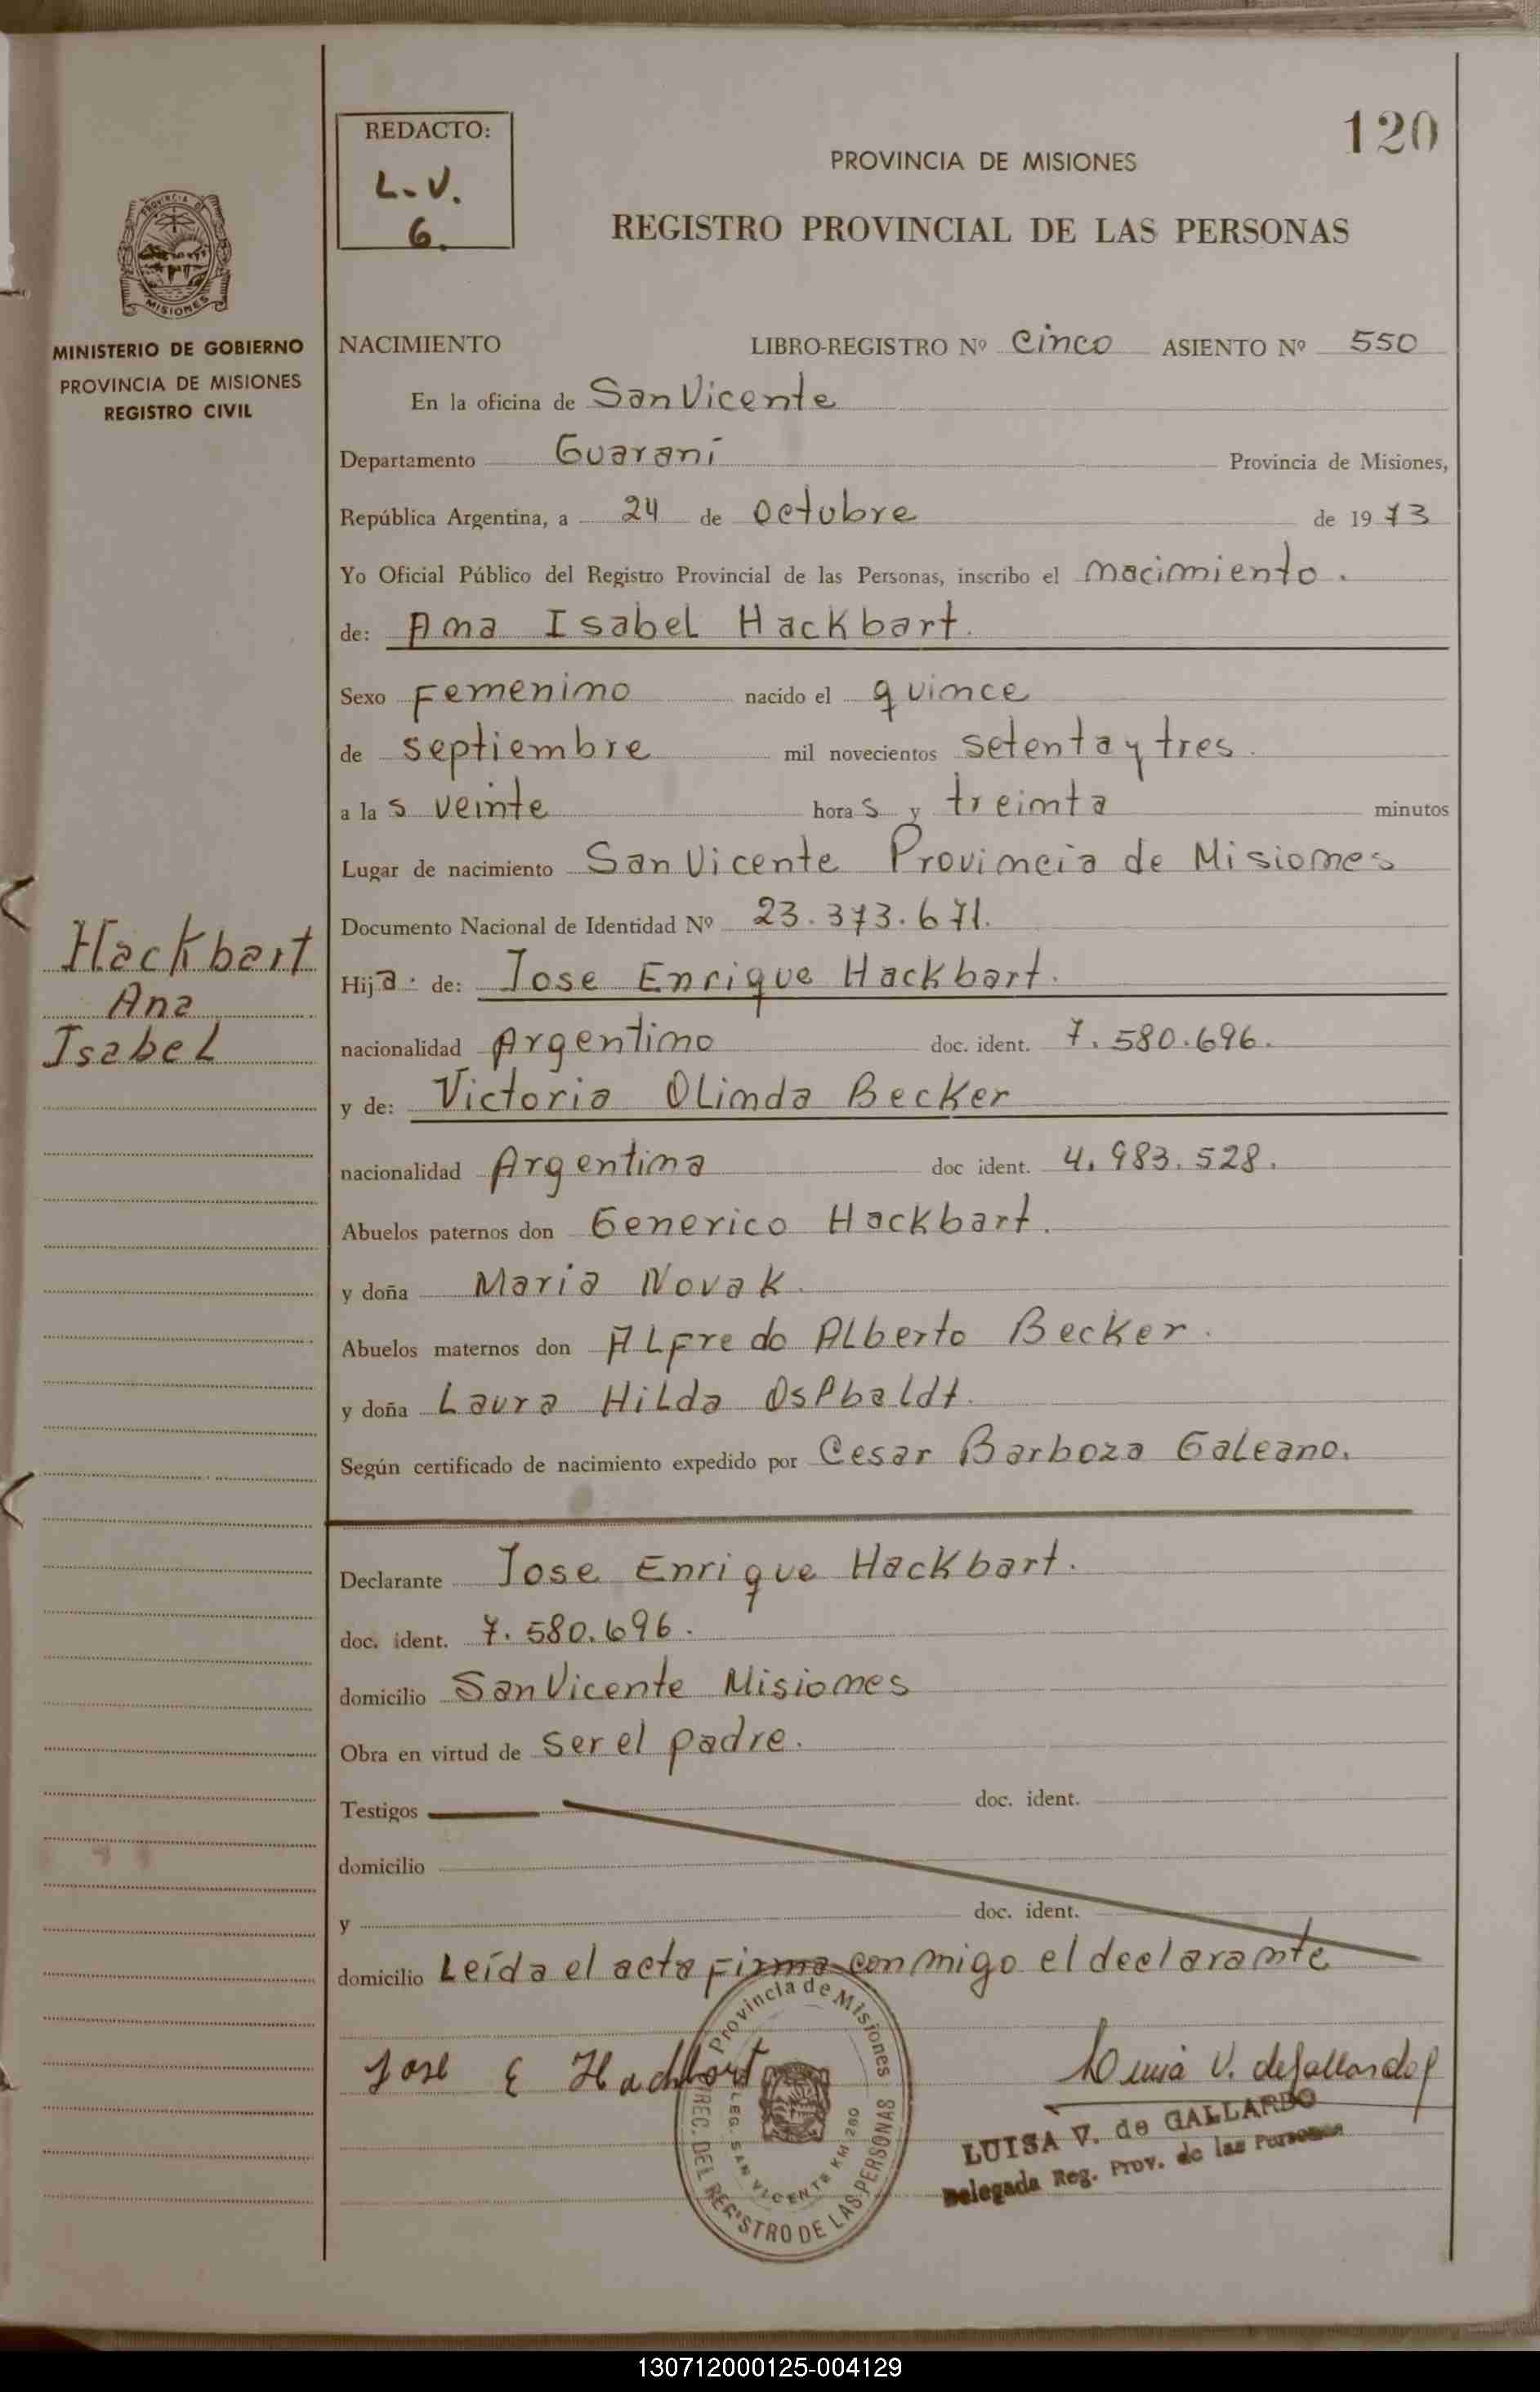 120
REDACTO:
L.V.
G.
PROVINCIA DE MISIONES
REGISTRO PROVINCIAL DE LAS PERSONAS
PROVINCIA DE
MISIONES
MINISTERIO DE GOBIERNO
PROVINCIA DE MISIONES
REGISTRO CIVIL
NACIMIENTO LIBRO-REGISTRO Nº Cinco ASIENTO Nº 550
En la oficina de San Vicente
Departamento Guaraní Provincia de Misiones,
República Argentina, a 24 de octubre de 1973
Yo Oficial Público del Registro Provincial de las Personas, inscribo el nacimiento.
de: Ana Isabel Hackbart.
Sexo Femenino nacido el quince
de septiembre mil novecientos setenta y tres.
a las veinte horas y treinta minutos
Lugar de nacimiento San Vicente Provincia de Misiones
Documento Nacional de Identidad Nº 23.373.671.
Hackbart
Ana
Isabel
Hija. de: Jose Enrique Hackbart.
nacionalidad Argentino doc. ident. 7.580.696.
y de: Victoria Olinda Becker
nacionalidad Argentina doc ident. 4.983.528.
Abuelos paternos don Generico Hackbart.
y doña Maria Novak.
Abuelos maternos don Alfredo Alberto Becker.
y doña Laura Hilda
Según certificado de nacimiento expedido por Cesar Barboza Galeano.
Declarante Jose Enrique Hackbart.
doc. ident. 7.580.696.
domicilio San Vicente Misiones
Obra en virtud de ser el padre.
Testigos doc. ident.
domicilio
y doc. ident.
domicilio Leída el acta firma conmigo el declarante
Jose E Hackbart
Provincia de Misiones
DIREC. DEL REGISTRO DE LAS PERSONAS
DELEG. SAN VICENTE KM 280
Luisa V. de Gallardo
LUISA V. de GALLARDO
Delegada Reg. Prov. de las Personas
130712000125-004129